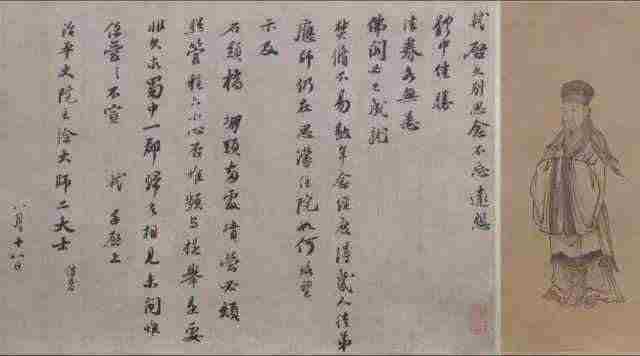 軾啟久別思念不忘遠想
體中佳勝
法眷各無恙
佛閣必已成就
焚修不易數年念經度得幾人徒弟
應師仍在思濛住院如何略望
示及
石頭橋 堋頭兩處墳塋必煩
照管程六小心否惟頻與提舉是要
非久求蜀中一郡歸去相見未間惟
保愛之不宣 軾手啟上
治平史院主徐大師二大士 侍者
八月十八日